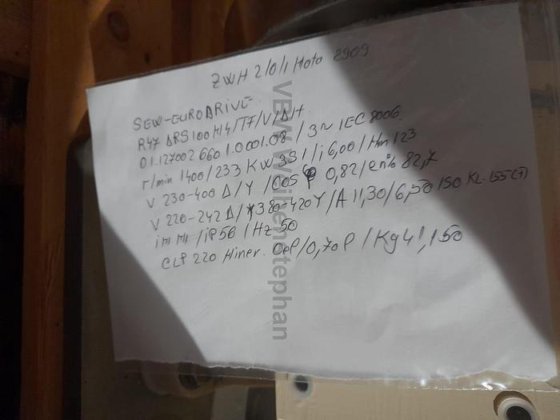 ZWH 2/0/1 Moto 8909
SEW-EURODRIVE
R47 DRS100M4/TF/V/DH
01.127002 660 1.0001.08 / 3~ IEC 8006
r/min 1400/233 KW 3S1/i6,00/Nm 123
V 230-400 Δ/Y /COS φ 0,82/en% 82,7
V 220-242 Δ/Y 380-420Y/A 11,30/6,50 150 KL.155(F)
iM M1/iP56/Hz 50
CLP 220 Miner. Oel/0,70 l/Kg 41,150